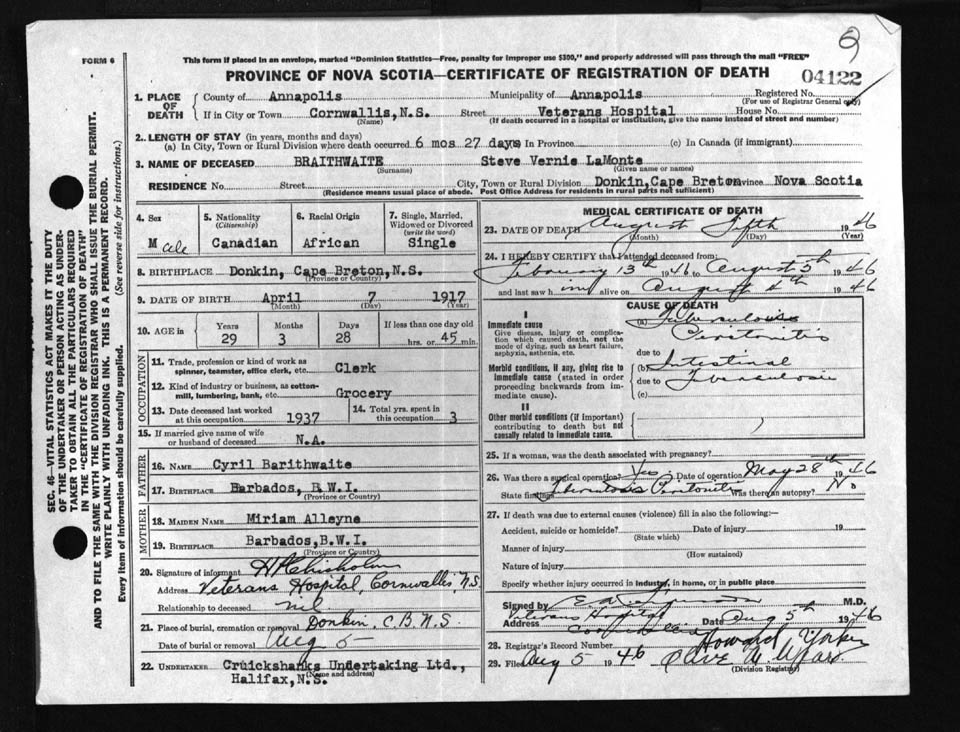 FORM 6
This form if placed in an envelope, marked "Dominion Statistics—Free, penalty for improper use $300," and properly addressed will pass through the mail "FREE"
PROVINCE OF NOVA SCOTIA—CERTIFICATE OF REGISTRATION OF DEATH
04122
1. PLACE OF DEATH
County of Annapolis Municipality of Annapolis Registered No.
(For use of Registrar General only)
If in City or Town Cornwallis, N.S. Street Veterans Hospital House No.
(Name) (If death occurred in a hospital or institution, give the name instead of street and number)
2. LENGTH OF STAY (in years, months and days)
(a) In City, Town or Rural Division where death occurred 6 mos 27 days In Province (c) In Canada (if immigrant)
3. NAME OF DECEASED BRAITHWAITE Steve Vernie LaMonte
(Surname) (Given name or names)
RESIDENCE No. Street City, Town or Rural Division Donkin, Cape Breton Province Nova Scotia
(Residence means usual place of abode. Post Office Address for residents in rural parts not sufficient)
4. Sex
Male
5. Nationality
(Citizenship)
Canadian
6. Racial Origin
African
7. Single, Married, Widowed or Divorced
(write the word)
Single
8. BIRTHPLACE Donkin, Cape Breton, N.S.
(Province or Country)
9. DATE OF BIRTH April 7 1917
(Month) (Day) (Year)
10. AGE in
Years Months Days If less than one day old
29 3 28 hrs. or 45 min.
OCCUPATION
11. Trade, profession or kind of work as spinner, teamster, office clerk, etc. Clerk
12. Kind of industry or business, as cotton-mill, lumbering, bank, etc. Grocery
13. Date deceased last worked at this occupation 1937
14. Total yrs. spent in this occupation 3
15. If married give name of wife or husband of deceased N.A.
FATHER
16. NAME Cyril Barithwaite
17. BIRTHPLACE Barbados, B.W.I.
(Province or Country)
MOTHER
18. MAIDEN NAME Miriam Alleyne
19. BIRTHPLACE Barbados, B.W.I.
(Province or Country)
20. Signature of informant H Chisholm
Address Veterans Hospital, Cornwallis, N.S.
Relationship to deceased nil
21. Place of burial, cremation or removal Donkin, C.B. N.S.
Date of burial or removal Aug 5
22. UNDERTAKER Cruickshanks Undertaking Ltd.,
(Name and address)
Halifax, N.S.
MEDICAL CERTIFICATE OF DEATH
23. DATE OF DEATH August Fifth 1946
(Month) (Day) (Year)
24. I HEREBY CERTIFY that I attended deceased from:
February 13th 1946 to August 5th 1946
and last saw him alive on August 4th 1946
CAUSE OF DEATH
I
Immediate cause
Give disease, injury or complication which caused death, not the mode of dying, such as heart failure, asphyxia, asthenia, etc.
(a) Tuberculous Peritonitis
due to
Morbid conditions, if any, giving rise to immediate cause (stated in order proceeding backwards from immediate cause).
(b) Intestinal
due to Tuberculosis
(c)
II
Other morbid conditions (if important) contributing to death but not causally related to immediate cause.
25. If a woman, was the death associated with pregnancy?
26. Was there a surgical operation? Yes Date of operation May 28th 1946
State findings Tuberculous Peritonitis Was there an autopsy? No
27. If death was due to external causes (violence) fill in also the following:—
Accident, suicide or homicide? Date of injury 19
(State which)
Manner of injury
(How sustained)
Nature of injury
Specify whether injury occurred in industry, in home, or in public place
Signed by M.D.
Address Veterans Hospital Cornwallis Date Aug 5th 1946
28. Registrar's Record Number Howard
29. Filed Aug 5 1946 Olive
(Division Registrar)
SEC. 46—VITAL STATISTICS ACT MAKES IT THE DUTY
OF THE UNDERTAKER OR PERSON ACTING AS UNDER-
TAKER TO OBTAIN ALL THE PARTICULARS REQUIRED
IN THE "CERTIFICATE OF REGISTRATION OF DEATH"
AND TO FILE THE SAME WITH THE DIVISION REGISTRAR WHO SHALL ISSUE THE BURIAL PERMIT.
WRITE PLAINLY WITH UNFADING INK. THIS IS A PERMANENT RECORD.
Every item of information should be carefully supplied. (See reverse side for instructions.)